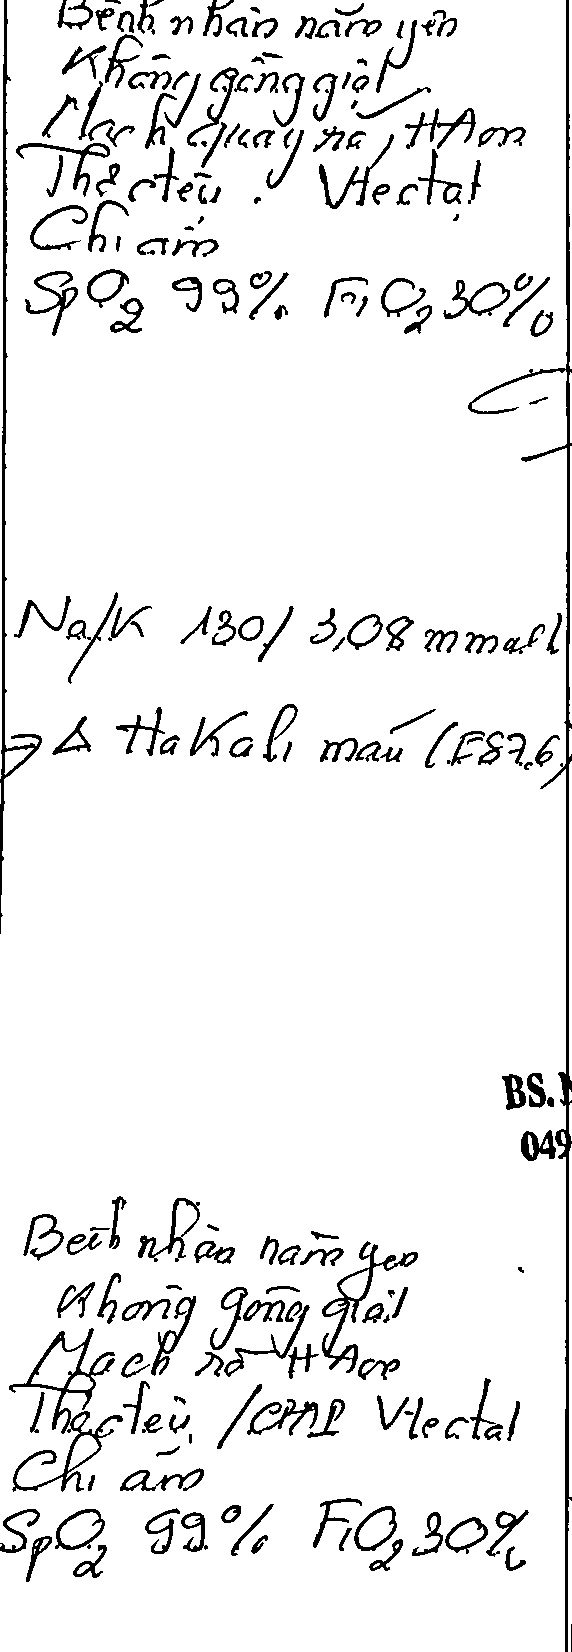 Bệnh nhân nằm yên
Không gồng giật
Mạch quay rõ, HA ổn
Thở đều. Vtectal
Chi ấm
SpO2 99% FiO2 30%
Na/K 130/ 3,08 mmol
→ Δ Hạ Kali máu (E87.6)
BS.
049
Bệnh nhân nằm yên
Không gồng giật
Mạch rõ HA ổn
Thở đều /CPAP Vtectal
Chi ấm
SpO2 99% FiO2 30%